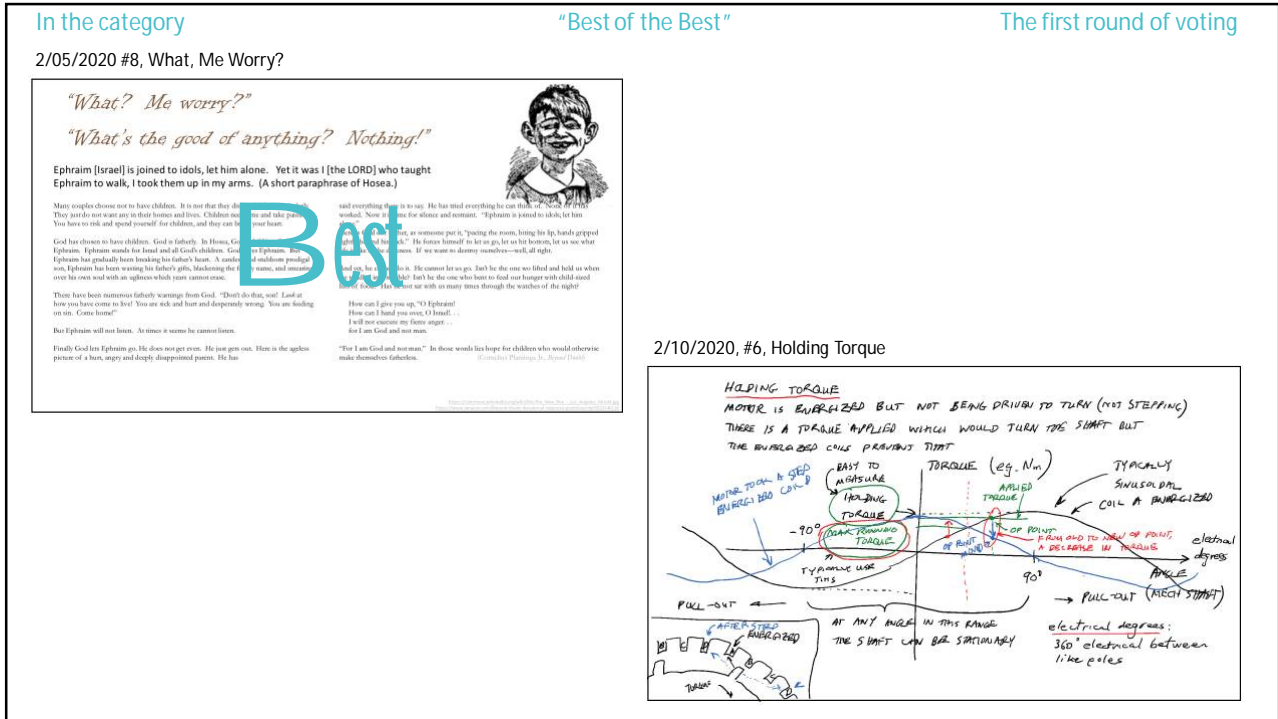 In the category
"Best of the Best"
The first round of voting
2/05/2020 #8, What, Me Worry?
"What? Me worry?"
"What's the good of anything? Nothing!"
Ephraim [Israel] is joined to idols, let him alone. Yet it was I [the LORD] who taught
Ephraim to walk, I took them up in my arms. (A short paraphrase of Hosea.)
Many couples choose not to have children. It is not that they
They just do not want any in their homes and lives. Children and take
You have to risk and spend yourself for children, and they can your heart.
God has chosen to have children. God is fatherly. In Hosea,
Ephraim. Ephraim stands for Israel and all God's children. Ephraim.
Ephraim has gradually been breaking his father's heart. A and stubborn prodigal
son, Ephraim has been wasting his father's gifts, blackening the name, and smearing
over his own soul with an ugliness which years cannot erase.
There have been numerous fatherly warnings from God. "Don't do that, son! Look at
how you have come to live! You are sick and hurt and desperately wrong. You are feeding
on sin. Come home!"
But Ephraim will not listen. At times it seems he cannot listen.
Finally God lets Ephraim go. He does not get even. He just gets out. Here is the ageless
picture of a hurt, angry and deeply disappointed parent. He has
said everything there is to say. He has tried everything he can think of. None of it has
worked. Now it is time for silence and restraint. "Ephraim is joined to idols; let him
as someone put it, "pacing the room, biting his lip, hands gripped
He forces himself to let us go, let us hit bottom, let us see what
If we want to destroy ourselves—well, all right.
And yet, he do it. He cannot let us go. Isn't he the one who lifted and held us when
Isn't he the one who bent to feed our hunger with child-sized
of food? Has he not sat with us many times through the watches of the night?
How can I give you up, "O Ephraim!
How can I hand you over, O Israel! . . .
I will not execute my fierce anger. . .
for I am God and not man.
"For I am God and not man." In those words lies hope for children who would otherwise
make themselves fatherless. (Cornelius Plantinga Jr., Beyond Doubt)
Best
2/10/2020, #6, Holding Torque
HOLDING TORQUE
MOTOR IS ENERGIZED BUT NOT BEING DRIVEN TO TURN (NOT STEPPING)
THERE IS A TORQUE APPLIED WHICH WOULD TURN THE SHAFT BUT
THE ENERGIZED COILS PREVENT THAT
MOTOR TOOK A STEP
ENERGIZED COIL B
EASY TO
MEASURE
HOLDING
TORQUE
TORQUE (eg. Nm)
APPLIED
TORQUE
TYPICALLY
SINUSOIDAL
COIL A ENERGIZED
-90°
PEAK RUNNING
TORQUE
TYPICALLY USE
THIS
OP POINT
MOVED
OP POINT
FROM OLD TO NEW OP POINT,
A DECREASE IN TORQUE
electrical
degrees
90°
ANGLE
(MECH SHAFT)
PULL-OUT
PULL-OUT
AT ANY ANGLE IN THIS RANGE
THE SHAFT CAN BE STATIONARY
electrical degrees:
360° electrical between
like poles
AFTER STEP
ENERGIZED
TORQUE